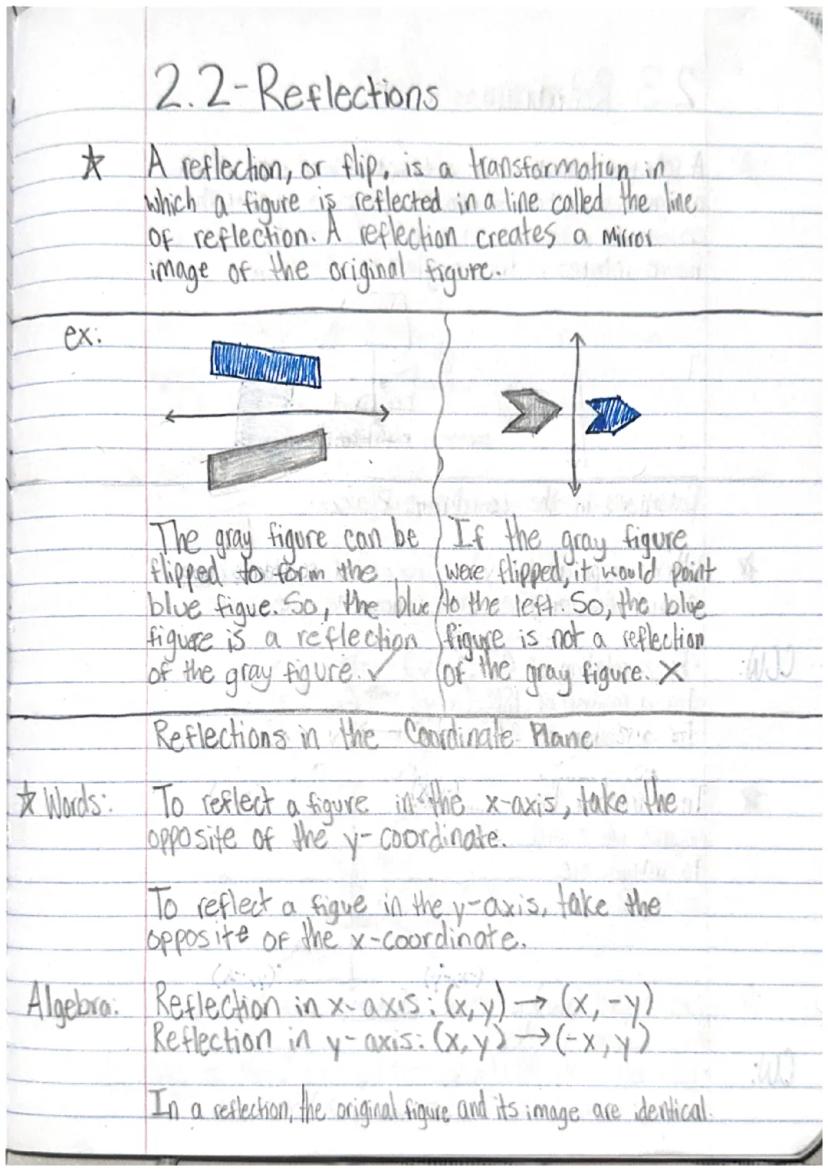 2.2-Reflections
☆ A reflection, or flip, is a transformation in
which a figure is reflected in a line called the line
of reflection. A reflection creates a mirror
image of the original figure.
ex:
The gray figure can be
flipped to form the
blue figue. So, the blue
figure is a reflection
of the gray figure. ✓
If the gray figure
were flipped, it would point
to the left. So, the blue
figure is not a reflection
of the gray figure. X
Reflections in the Coordinate Plane
☆ Words: To reflect a figure in the x-axis, take the
opposite of the y-coordinate.
To reflect a figue in the y-axis, take the
opposite of the x-coordinate.
Algebra: Reflection in x-axis: (x,y) → (x,-y)
Reflection in y-axis: (x,y) → (-x,y)
In a reflection, the original figure and its image are identical.